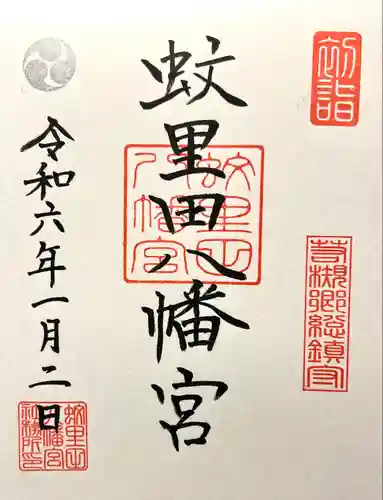 初詣
苦槻郷総鎮守
蚊里田八幡宮
蚊里田八幡宮
令和六年一月二日
蚊里田八幡宮社務所印